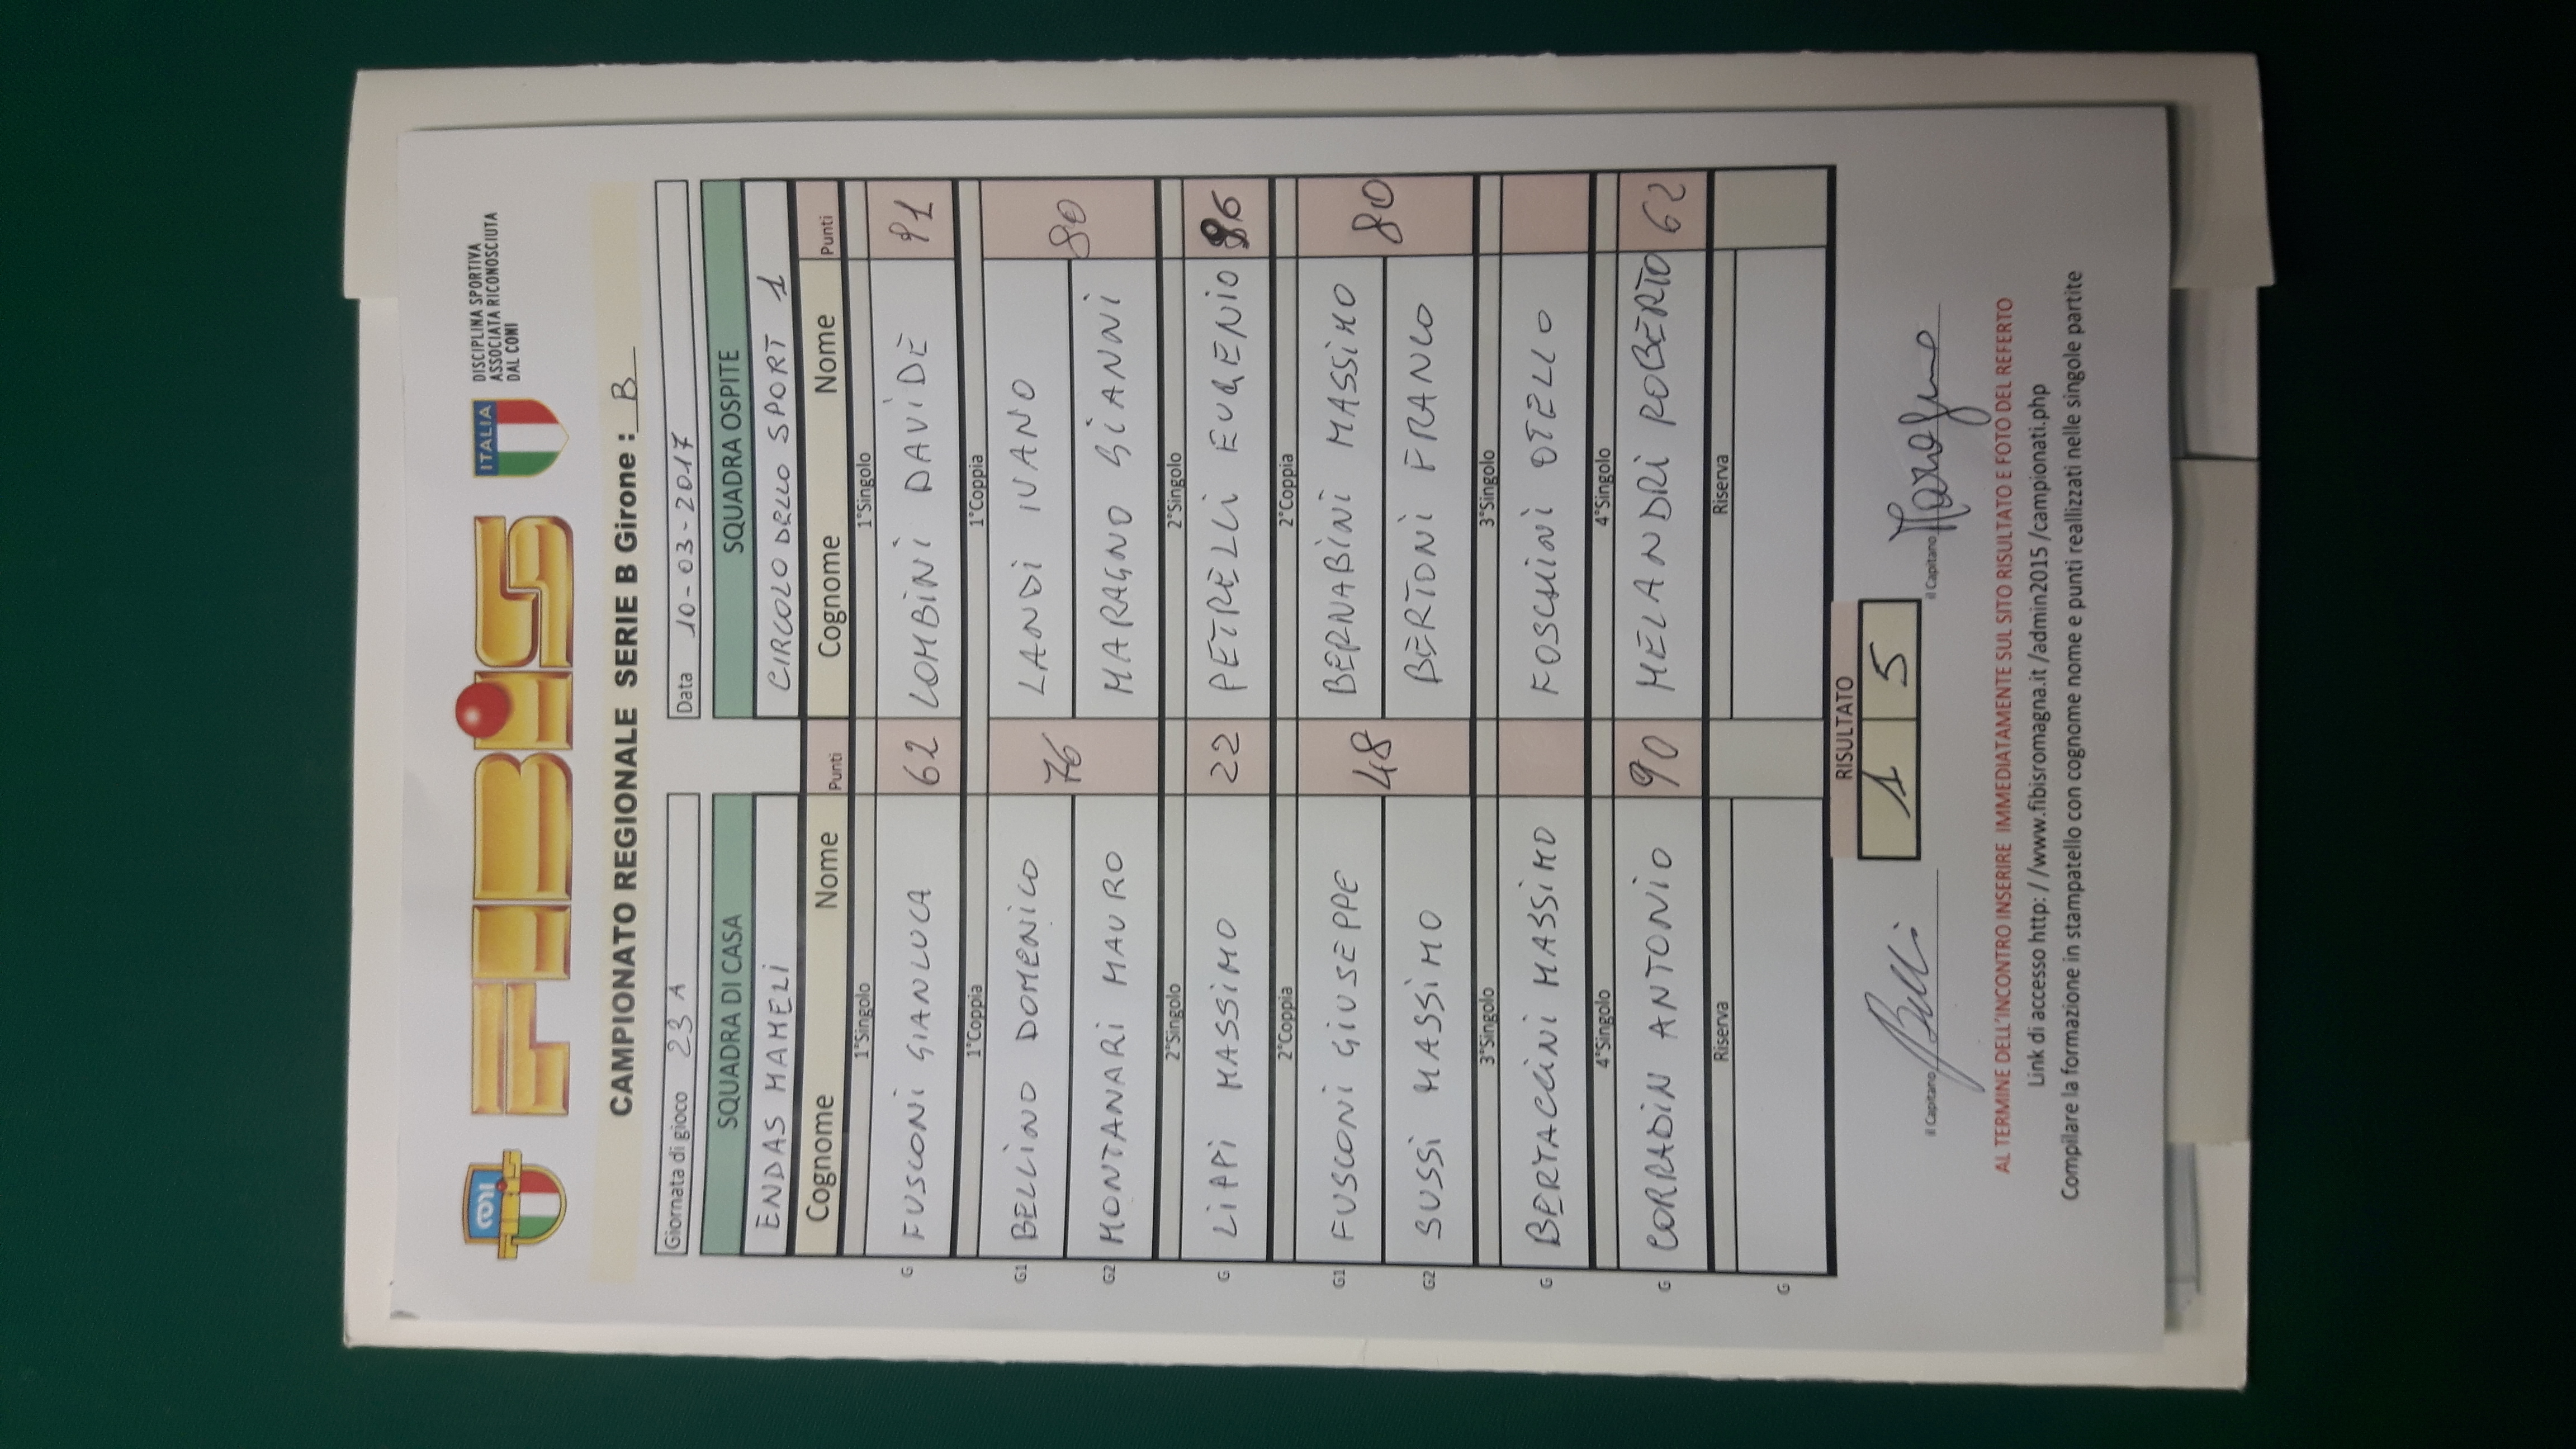 FIBiS
ITALIA
DISCIPLINA SPORTIVA
ASSOCIATA RICONOSCIUTA
DAL CONI
CAMPIONATO REGIONALE SERIE B Girone : B
Giornata di gioco 23 A Data 10-03-2017
SQUADRA DI CASA SQUADRA OSPITE
ENDAS MAMELI CIRCOLO DELLO SPORT 1
Cognome Nome Punti Cognome Nome Punti
1°Singolo 1°Singolo
G FUSCONI GIANLUCA 62 LOMBINI DAVIDE 91
1°Coppia 1°Coppia
G1 BELLINO DOMENICO 76 LANDI IVANO 80
G2 MONTANARI MAURO MARAGNO GIANNI
2°Singolo 2°Singolo
G LIPPI MASSIMO 22 PETRELLI EUGENIO 86
2°Coppia 2°Coppia
G1 FUSCONI GIUSEPPE 48 BERNABINI MASSIMO 80
G2 SUSSI MASSIMO BERTONI FRANCO
3°Singolo 3°Singolo
G BERTACCINI MASSIMO FOSCHINI OTELLO
4°Singolo 4°Singolo
G CORRADIN ANTONIO 90 MELANDRI ROBERTO 62
Riserva Riserva
G
RISULTATO
1 5
il Capitano il Capitano
AL TERMINE DELL'INCONTRO INSERIRE IMMEDIATAMENTE SUL SITO RISULTATO E FOTO DEL REFERTO
Link di accesso http: / /www.fibisromagna.it /admin2015 /campionati.php
Compilare la formazione in stampatello con cognome nome e punti reallizzati nelle singole partite